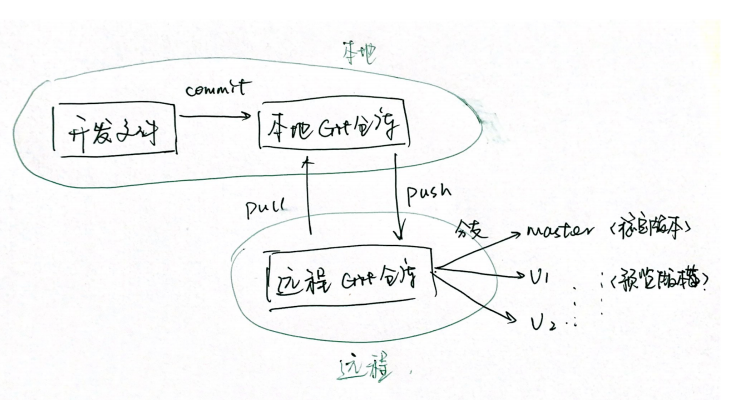 本地
commit
开发文件
本地Git仓库
pull
push
分支
master (稳定版本)
远程Git仓库
V1
(预览版本等)
V2
远程